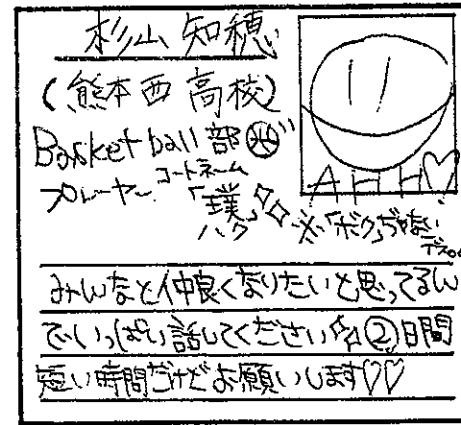 杉山 知穂
(熊本西高校)
Basketball部
プレーヤー コートネーム
「璞」
ハク
※「ボク」ぢゃない
デス。
AHH♡
みんなと仲良くなりたいと思ってるん
でいっぱい話してください☆②日間
短い時間だけどお願いします♡♡